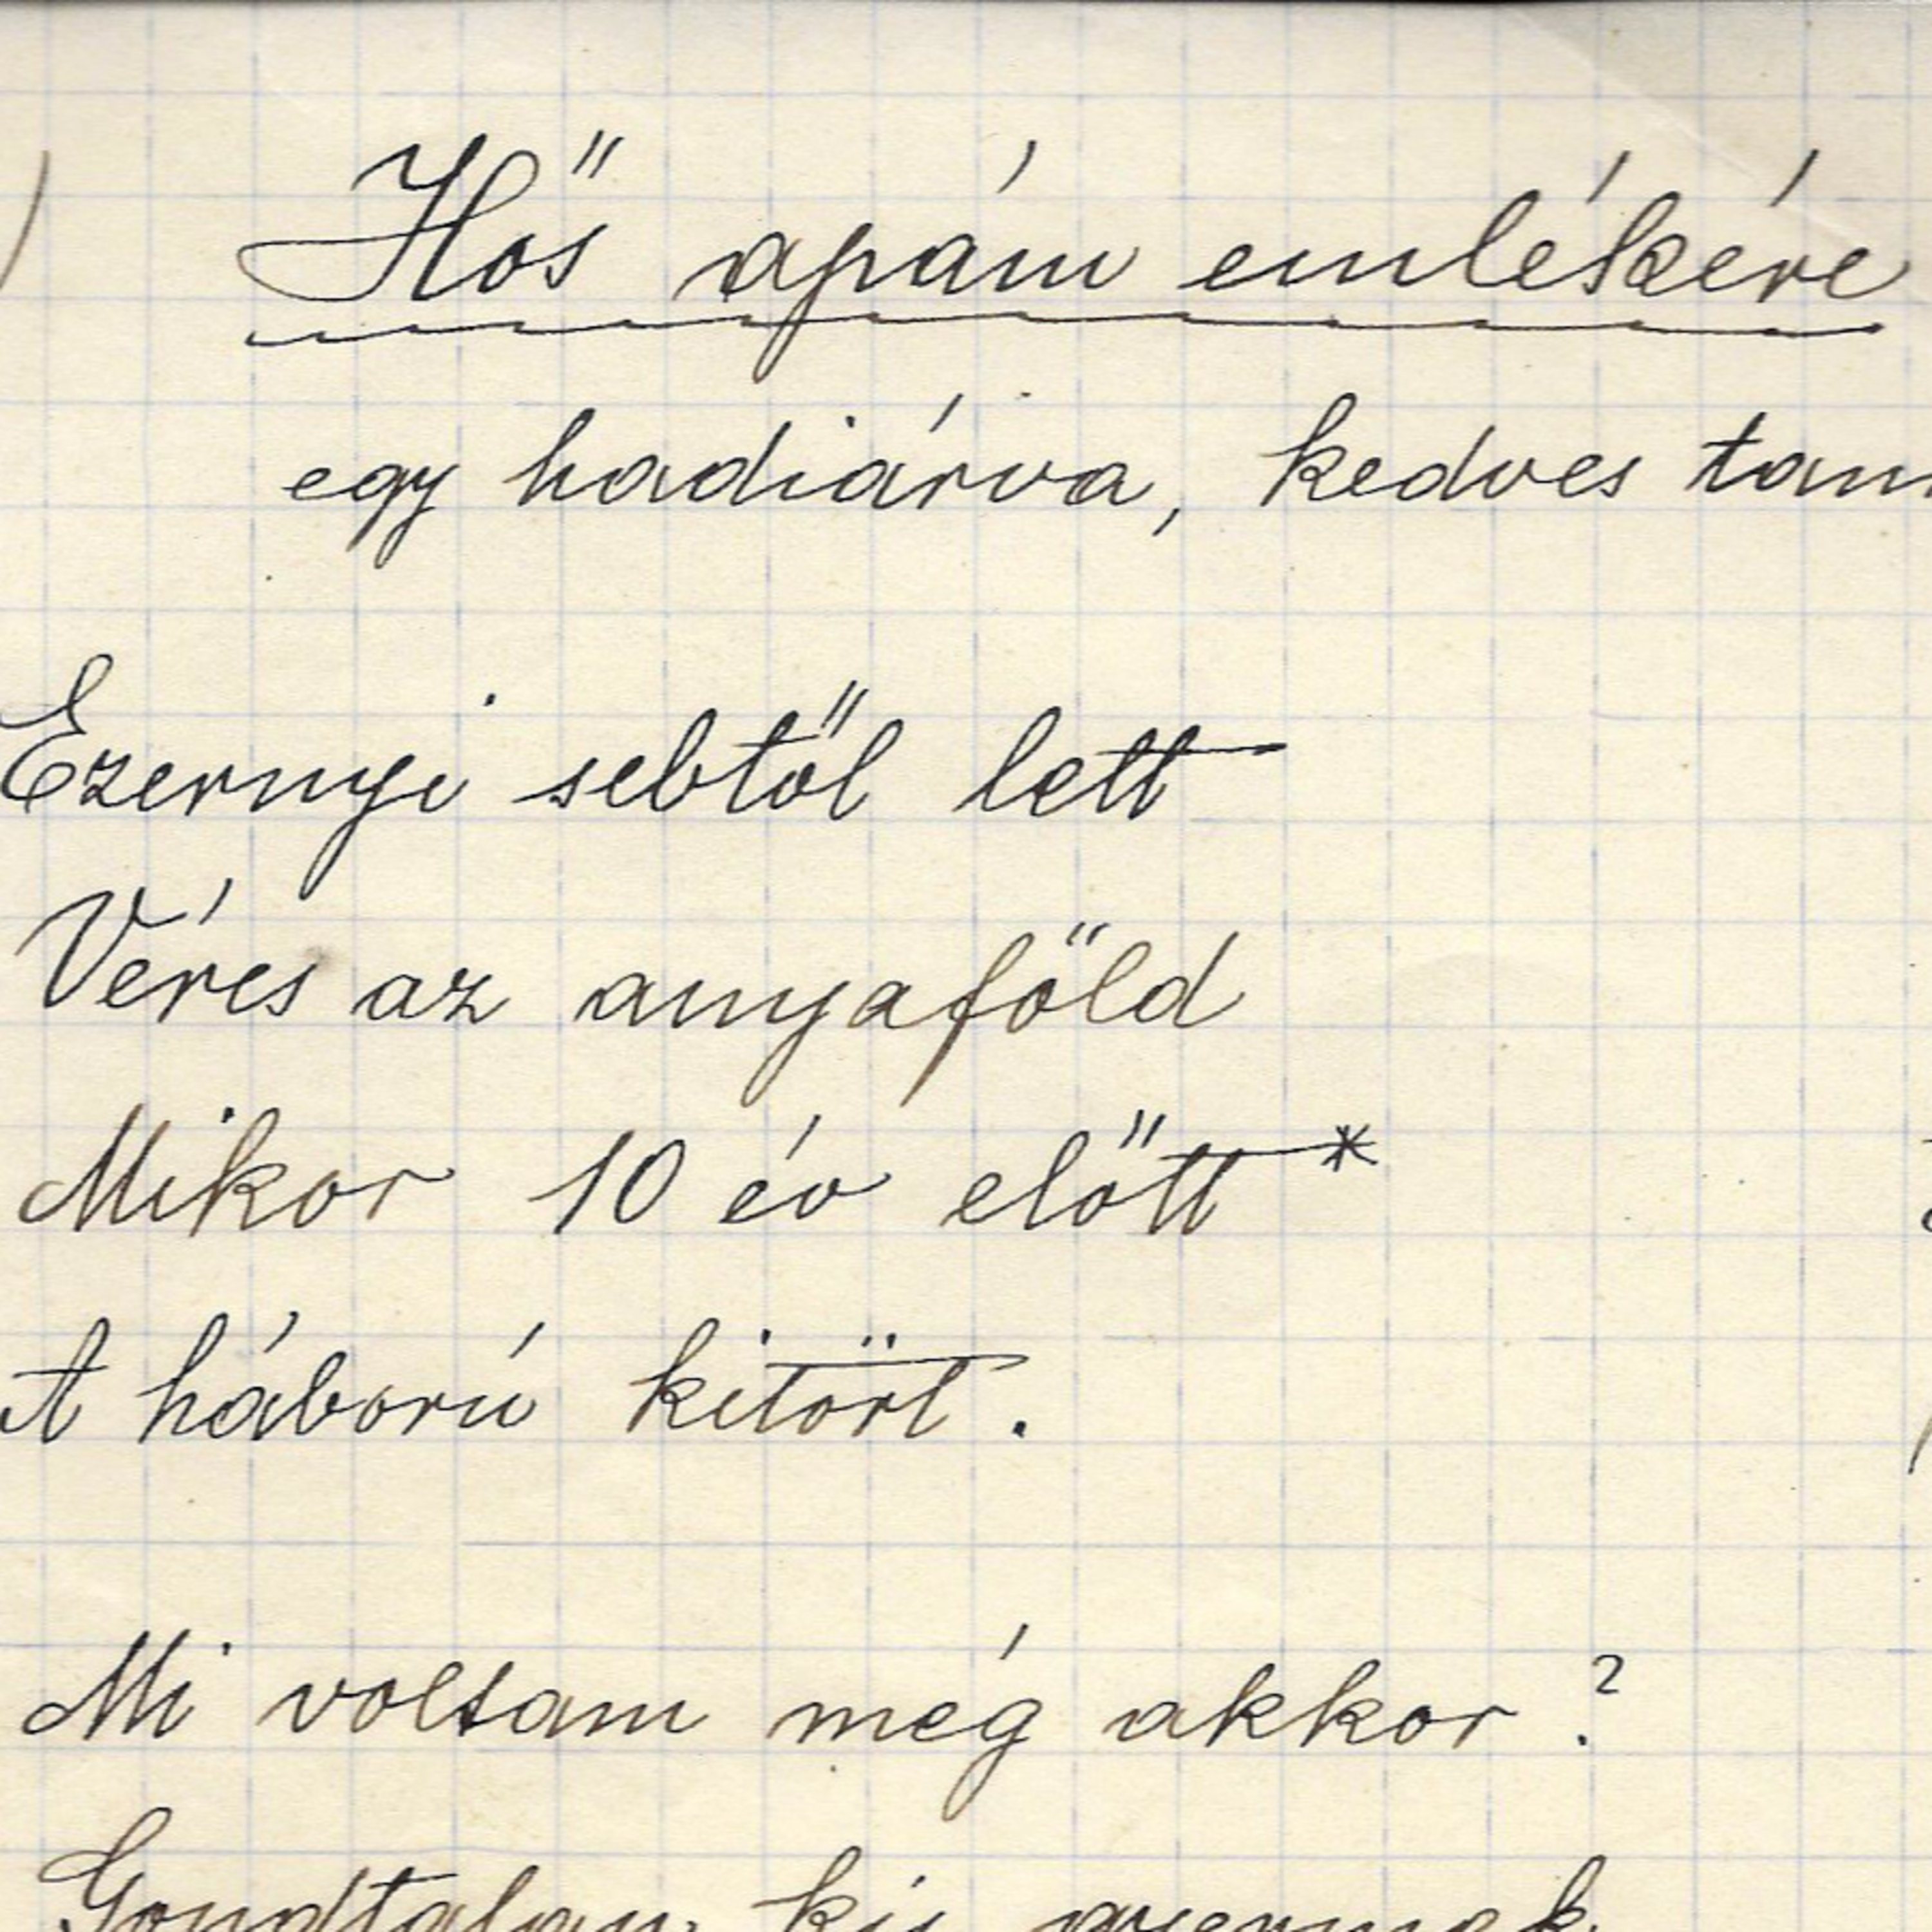 Hős apám emlékére
egy hadiárva, kedves tan
Ezernyi sebtől lett
Véres az anyaföld
Mikor 10 év előtt *
A háború kitört.
Mi voltam még akkor?
Gondtalan kis gyermek